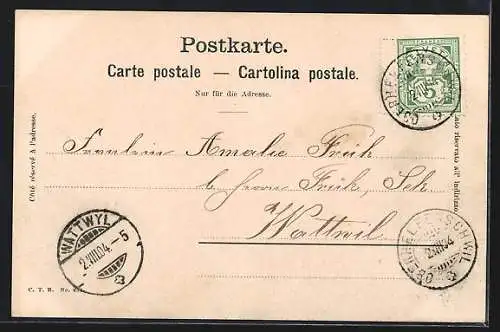 Postkarte.
Carte postale — Cartolina postale.
Nur für die Adresse.
Côté réservé à l'adresse.
Lato riservato all' indirizzo.
Fräulein Amalie Früh
b. Herrn Früh, Sek
Wattwil
WATTWYL
2.VIII.04.-5
OBERHELFENSCHWIL
2.VIII.04
C. T. R. No.